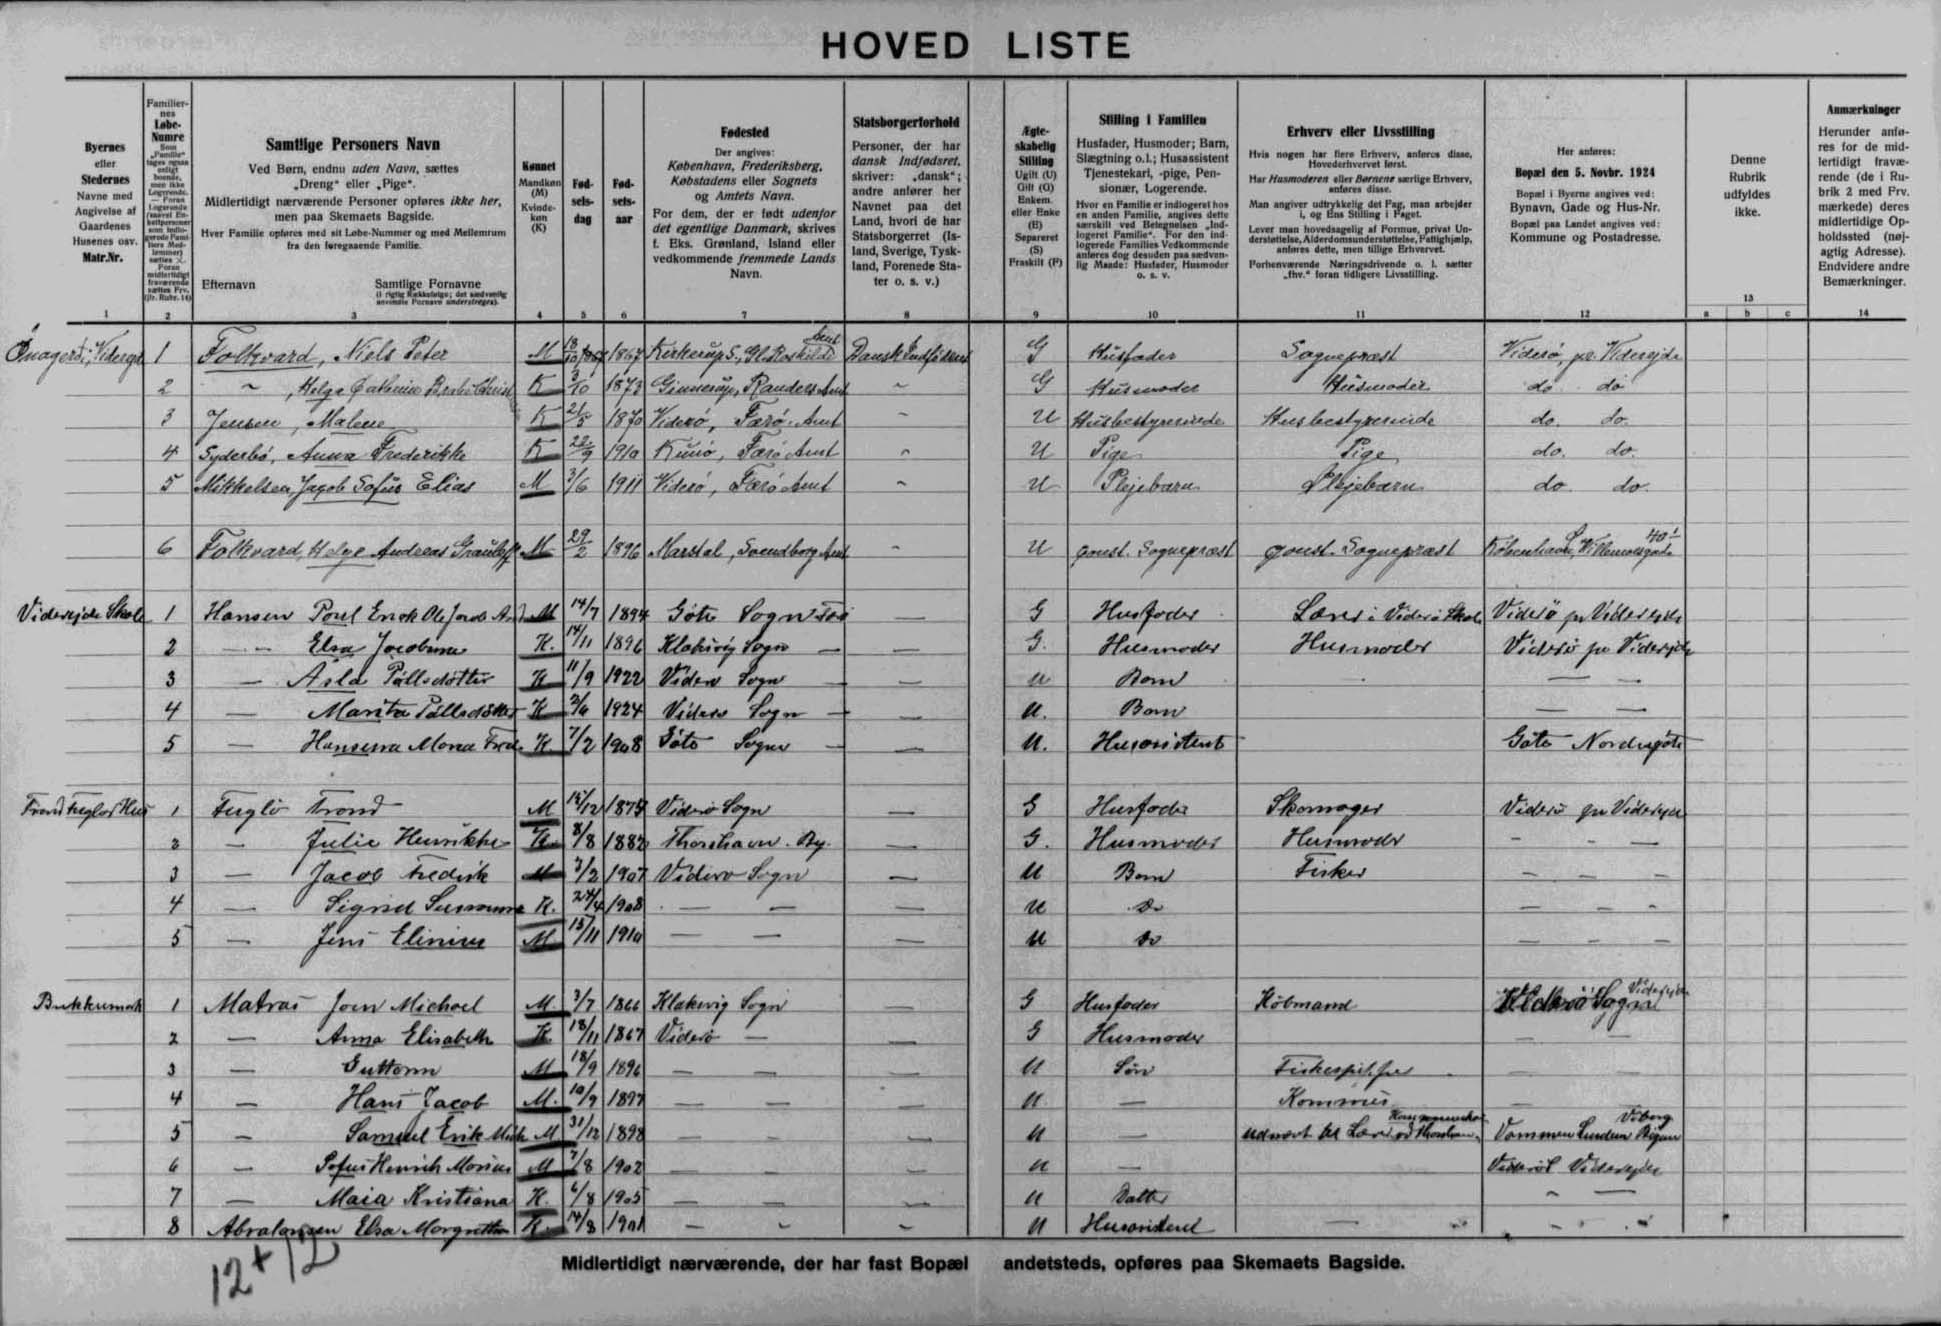 HOVED LISTE
Byernes eller Stedernes Navne med Angivelse af Gaardenes Husenes osv. Matr.Nr.
Familiernes Løbe-Numre
Samtlige Personers Navn
Ved Børn, endnu uden Navn, sættes „Dreng" eller „Pige".
Midlertidigt nærværende Personer opføres ikke her, men paa Skemaets Bagside.
Hver Familie opføres med sit Løbe-Nummer og med Mellemrum fra den foregaaende Familie.
Efternavn Samtlige Fornavne
(i rigtig Rækkefølge; det sædvanlig anvendte Fornavn understreges).
Kønnet Mandkøn (M) Kvindekøn (K)
Fødselsdag
Fødselsaar
Fødested
Der angives:
København, Frederiksberg, Købstadens eller Sognets og Amtets Navn.
For dem, der er født udenfor det egentlige Danmark, skrives f. Eks. Grønland, Island eller vedkommende fremmede Lands Navn.
Statsborgerforhold
Personer, der har dansk Indfødsret, skriver: „dansk"; andre anfører her Navnet paa det Land, hvori de har Statsborgerret (Island, Sverige, Tyskland, Forenede Stater o. s. v.)
Ægteskabelig Stilling Ugift (U) Gift (G) Enkem. eller Enke (E) Separeret (S) Fraskilt (F)
Stilling i Familien
Husfader, Husmoder; Barn, Slægtning o.l.; Husassistent Tjenestekarl, -pige, Pensionær, Logerende.
Hvor en Familie er indlogeret hos en anden Familie, angives dette særskilt ved Betegnelsen „Indlogeret Familie". For den indlogerede Families Vedkommende anføres dog desuden paa sædvanlig Maade: Husfader, Husmoder o. s. v.
Erhverv eller Livsstilling
Hvis nogen har flere Erhverv, anføres disse, Hovederhvervet først.
Har Husmoderen eller Børnene særlige Erhverv, anføres disse.
Man angiver udtrykkelig det Fag, man arbejder i, og Ens Stilling i Faget.
Lever man hovedsagelig af Formue, privat Understøttelse, Alderdomsunderstøttelse, Fattighjælp, anføres dette, men tillige Erhvervet.
Forhenværende Næringsdrivende o. l. sætter „fhv." foran tidligere Livsstilling.
Her anføres:
Bopæl den 5. Novbr. 1924
Bopæl i Byerne angives ved:
Bynavn, Gade og Hus-Nr.
Bopæl paa Landet angives ved:
Kommune og Postadresse.
Denne Rubrik udfyldes ikke.
Anmærkninger
Herunder anføres for de midlertidigt fraværende (de i Rubrik 2 med Frv. mærkede) deres midlertidige Opholdssted (nøjagtig Adresse). Endvidere andre Bemærkninger.
1 2 3 4 5 6 7 8 9 10 11 12 13 a b c 14
1 Folkvard, Niels Peter M 18/10 1867 Kirkerup S., Gl. Roskilde Amt Dansk Indfødsret G Husfader Sognepræst Viderø, pr. Viderejde
2 " K 3/10 1873 Ginnerup, Randers Amt " G Husmoder Husmoder do do
3 Jensen, Malene K 21/5 1870 Viderø, Færø Amt " U Husbestyrerinde Husbestyrerinde do. do.
4 Syderbö, Anna Frederikke K 22/9 1910 Kunø, Færø Amt " U Pige Pige do. do.
5 Mikkelsen Jagob Sofus Elias M 3/6 1911 Viderø, Færø Amt " U Plejebarn Plejebarn do. do.
6 Folkvard, Helge Andreas M 29/2 1896 Marstal, Svendborg Amt " U const. Sognepræst const. Sognepræst København
Viderejde Skole 1 Hansen Poul Enok Ole M 14/7 1894 Göte Sogn — G Husfader Lærer i Viderø Skole Viderö pr Viderejde
2 — Elsa Jacobine K. 14/11 1896 Klaksvig Sogn — — G. Husmoder Husmoder Viderö pr Viderejde
3 — Asla Pállsdóttir K 11/9 1922 Viderø Sogn — — U Barn — —
4 — Marita Pállsdóttir K 1924 Viderø Sogn — — U. Barn — —
5 — Hansina K. 7/2 1908 Göte Sogn — — U. Husassistent Göte Nordregöte
1 Fuglö Trond M 15/12 Viderø Sogn — G Husfader Skomager Viderø pr Viderejde
2 — Julie Henrikke K. 8/8 1882 Thorshavn By. — G. Husmoder Husmoder — —
3 — Jacob Fredrik M 3/2 1907 Viderø Sogn — U Barn Fisker — — —
4 — Sigrid K. 24/4 1908 — — — U Do — — —
5 — Jens M. 15/11 1910 — — — U Do — — —
1 Matras Joen Michael M. 3/7 1866 Klaksvig Sogn — G Husfader Købmand Viderø Sogn Viderejde
2 — Anna Elisabeth K. 18/11 1867 Viderø — — G Husmoder — —
3 — Guttorm M. 18/9 1896 — — — U Søn — —
4 — Hans Jacob M. 10/9 1897 — — — U. — Kommis —
5 — Samuel Erik M 31/12 1898 — — — U —
6 — Sofus Henrik Marius M 7/8 1902 — — — U — Viderejde
7 — Maia Kristiana K. 6/8 1905 — — — U Datter " —
8 Abrahamsen Elsa K. 14/8 1901 — — — U Husassistent — —
12 + 12
Midlertidigt nærværende, der har fast Bopæl andetsteds, opføres paa Skemaets Bagside.